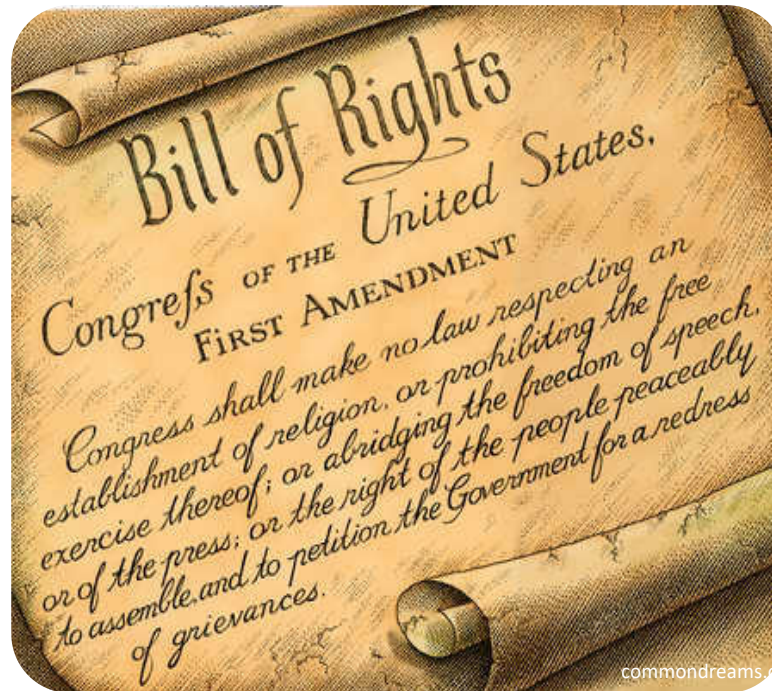 Bill of Rights
Congreſs OF THE United States,
FIRST AMENDMENT
Congress shall make no law respecting an
establishment of religion, or prohibiting the free
exercise thereof; or abridging the freedom of speech,
or of the press; or the right of the people peaceably
to assemble, and to petition the Government for a redress
of grievances.
commondreams.